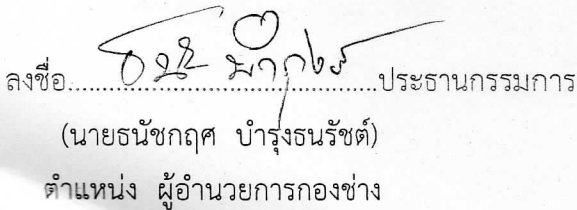 ลงชื่อ.............................................ประธานกรรมการ
(นายธนัชกฤศ บำรุงธนรัชต์)
ตำแหน่ง ผู้อำนวยการกองช่าง